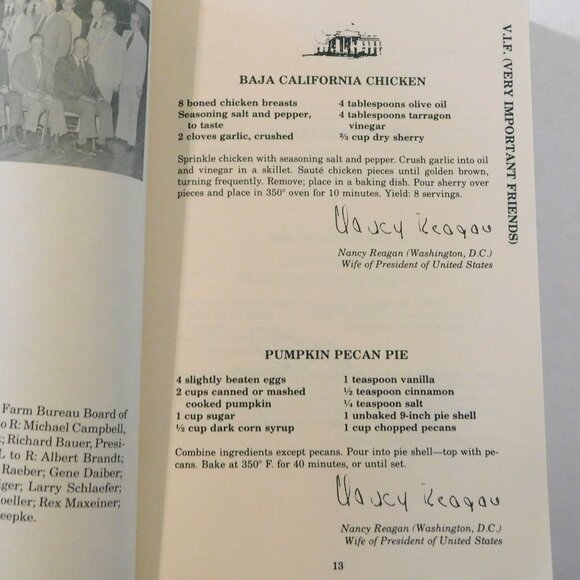 Farm Bureau Board of
to R: Michael Campbell,
; Richard Bauer, Presi-
L to R: Albert Brandt;
Raeber; Gene Daiber;
ger; Larry Schlaefer;
oeller; Rex Maxeiner;
eepke.
BAJA CALIFORNIA CHICKEN
8 boned chicken breasts
Seasoning salt and pepper,
to taste
2 cloves garlic, crushed
4 tablespoons olive oil
4 tablespoons tarragon
vinegar
⅔ cup dry sherry
Sprinkle chicken with seasoning salt and pepper. Crush garlic into oil
and vinegar in a skillet. Sauté chicken pieces until golden brown,
turning frequently. Remove; place in a baking dish. Pour sherry over
pieces and place in 350° oven for 10 minutes. Yield: 8 servings.
Nancy Reagan
Nancy Reagan (Washington, D.C.)
Wife of President of United States
PUMPKIN PECAN PIE
4 slightly beaten eggs
2 cups canned or mashed
cooked pumpkin
1 cup sugar
½ cup dark corn syrup
1 teaspoon vanilla
½ teaspoon cinnamon
¼ teaspoon salt
1 unbaked 9-inch pie shell
1 cup chopped pecans
Combine ingredients except pecans. Pour into pie shell—top with pe-
cans. Bake at 350° F. for 40 minutes, or until set.
Nancy Reagan
Nancy Reagan (Washington, D.C.)
Wife of President of United States
13
V.I.F. (VERY IMPORTANT FRIENDS)